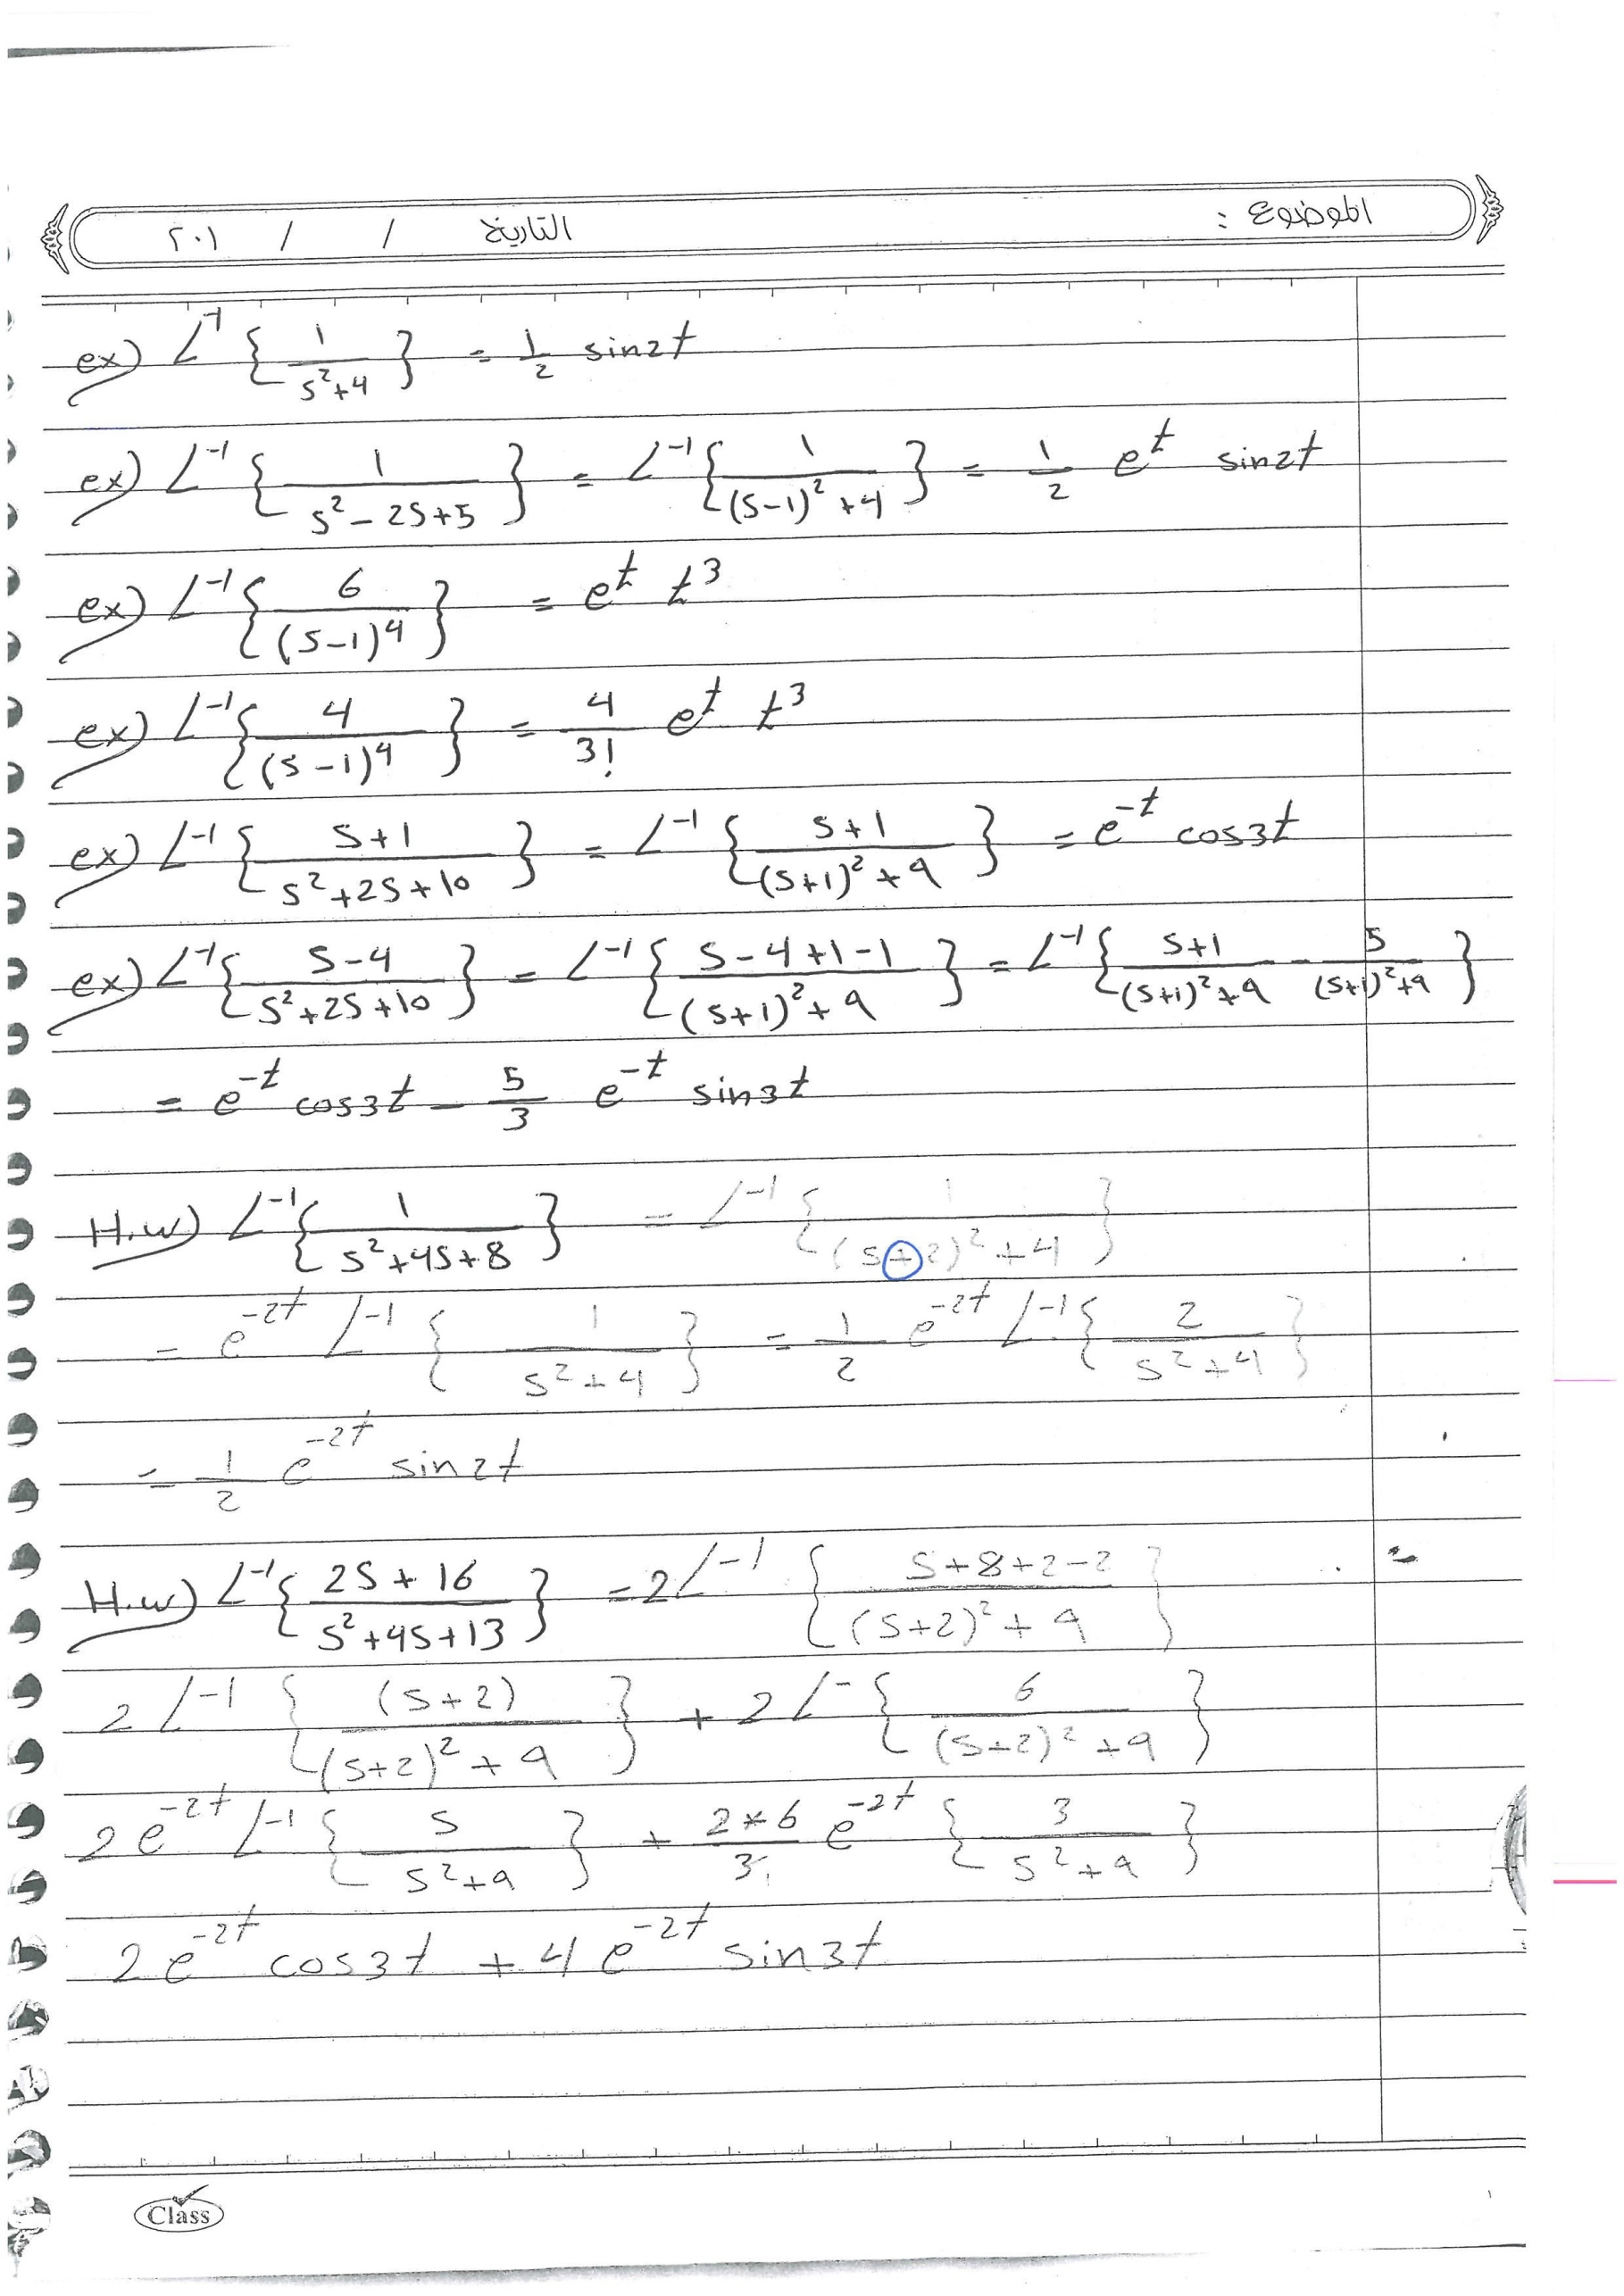 الموضوع : التاريخ / / ٢٠١
ex) L⁻¹ { 1 / (s²+4) } = 1/2 sin2t
ex) L⁻¹ { 1 / (s²-2s+5) } = L⁻¹ { 1 / ((s-1)²+4) } = 1/2 e^t sin2t
ex) L⁻¹ { 6 / (s-1)⁴ } = e^t t³
ex) L⁻¹ { 4 / (s-1)⁴ } = 4/3! e^t t³
ex) L⁻¹ { (s+1) / (s²+2s+10) } = L⁻¹ { (s+1) / ((s+1)²+9) } = e^-t cos3t
ex) L⁻¹ { (s-4) / (s²+2s+10) } = L⁻¹ { (s-4+1-1) / ((s+1)²+9) } = L⁻¹ { (s+1) / ((s+1)²+9) - 5 / ((s+1)²+9) }
= e^-t cos3t - 5/3 e^-t sin3t
H.w) L⁻¹ { 1 / (s²+4s+8) } = L⁻¹ { 1 / ((s+2)²+4) }
= e^-2t L⁻¹ { 1 / (s²+4) } = 1/2 e^-2t L⁻¹ { 2 / (s²+4) }
= 1/2 e^-2t sin2t
H.w) L⁻¹ { (2s+16) / (s²+4s+13) } = 2 L⁻¹ { (s+8+2-2) / ((s+2)²+9) }
2 L⁻¹ { (s+2) / ((s+2)²+9) } + 2 L⁻ { 6 / ((s+2)²+9) }
2e^-2t L⁻¹ { s / (s²+9) } + 2*6/3 e^-2t { 3 / (s²+9) }
2e^-2t cos3t + 4e^-2t sin3t
Class